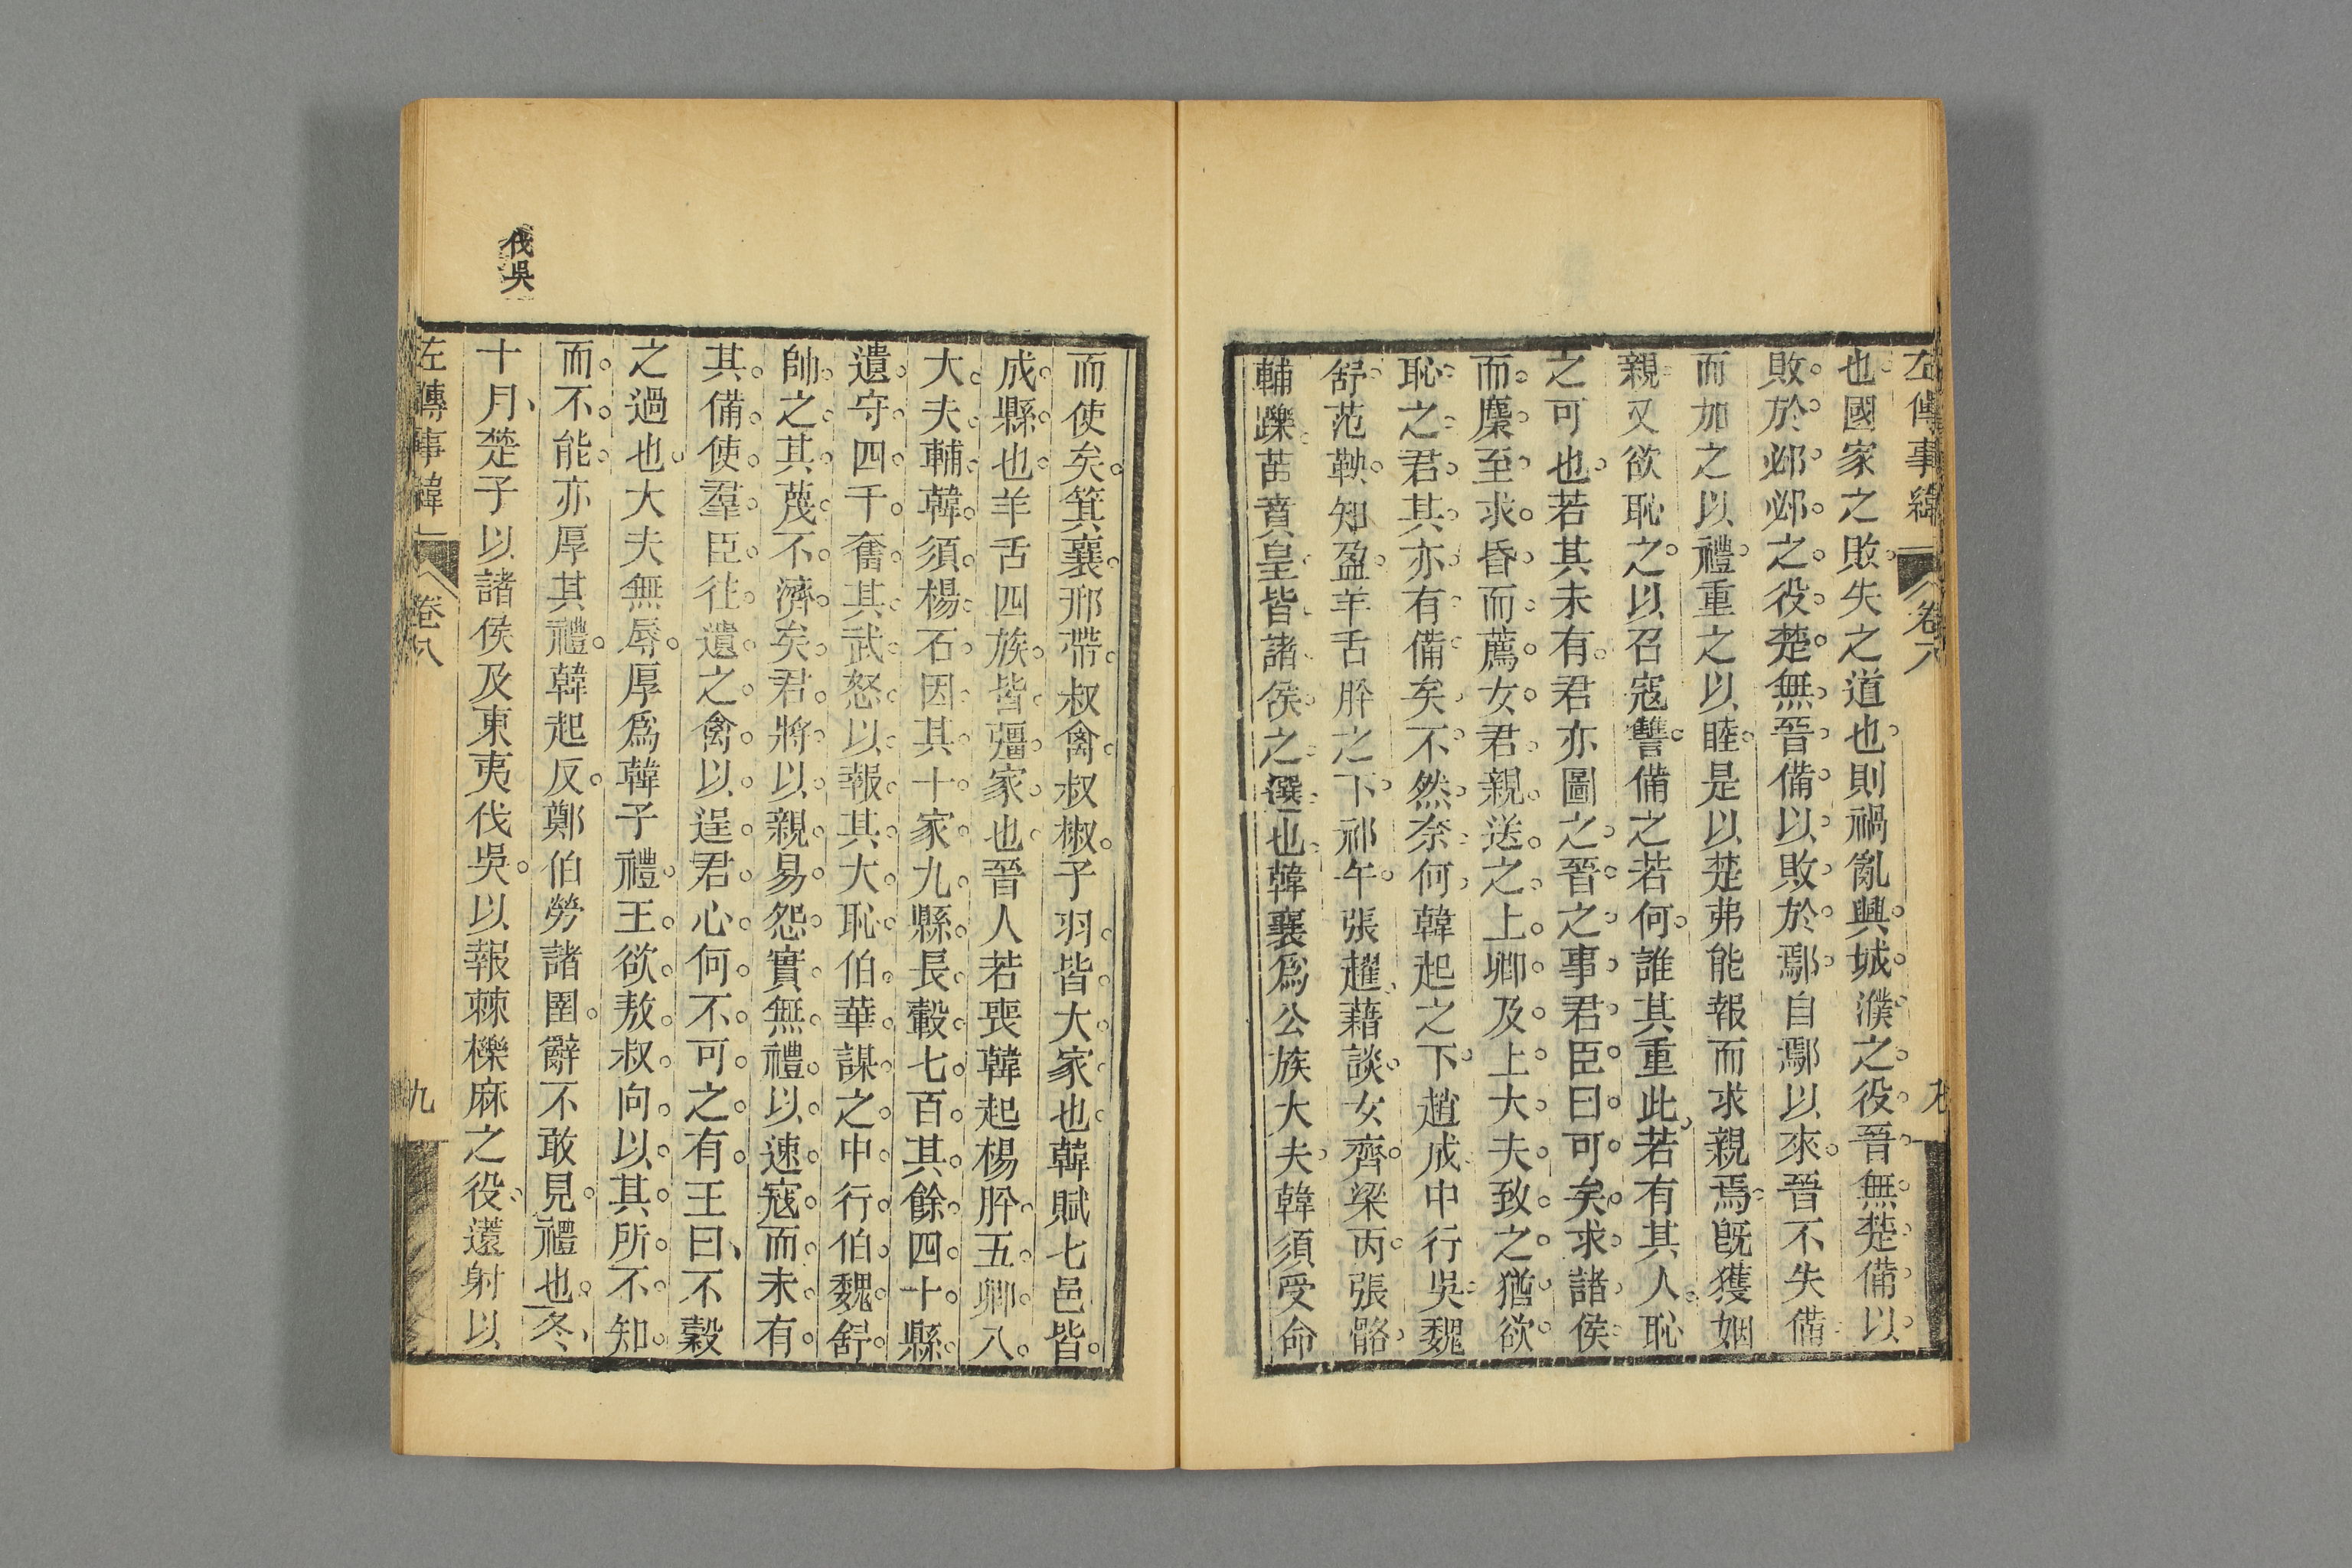 左傳事緯
卷八
也國家之敗失之道也則禍亂興城濮之役晉無楚備以
敗於邲邲之役楚無晉備以敗於鄢自鄢以來晉不失備
而加之以禮重之以睦是以楚弗能報而求親焉既獲姻
親又欲恥之以召寇讐備之若何誰其重此若有其人恥
之可也若其未有君亦圖之晉之事君臣曰可矣求諸侯
而麇至求昏而薦女君親送之上卿及上大夫致之猶欲
恥之君其亦有備矣不然奈何韓起之下趙成中行吳魏
舒范鞅知盈羊舌肸之下祁午張趯藉談女齊梁丙張骼
輔躒苗賁皇皆諸侯之選也韓襄爲公族大夫韓須受命
而使矣箕襄邢帶叔禽叔椒子羽皆大家也韓賦七邑皆
成縣也羊舌四族皆彊家也晉人若喪韓起楊肸五卿八
大夫輔韓須楊石因其十家九縣長轂七百其餘四十縣
遺守四千奮其武怒以報其大恥伯華謀之中行伯魏舒
帥之其蔑不濟矣君將以親易怨實無禮以速寇而未有
其備使羣臣往遺之禽以逞君心何不可之有王曰不穀
之過也大夫無辱厚爲韓子禮王欲敖叔向以其所不知
而不能亦厚其禮韓起反鄭伯勞諸圉辭不敢見禮也冬
伐吳
十月楚子以諸侯及東夷伐吳以報棘櫟麻之役薳射以
左傳事緯
卷八
九